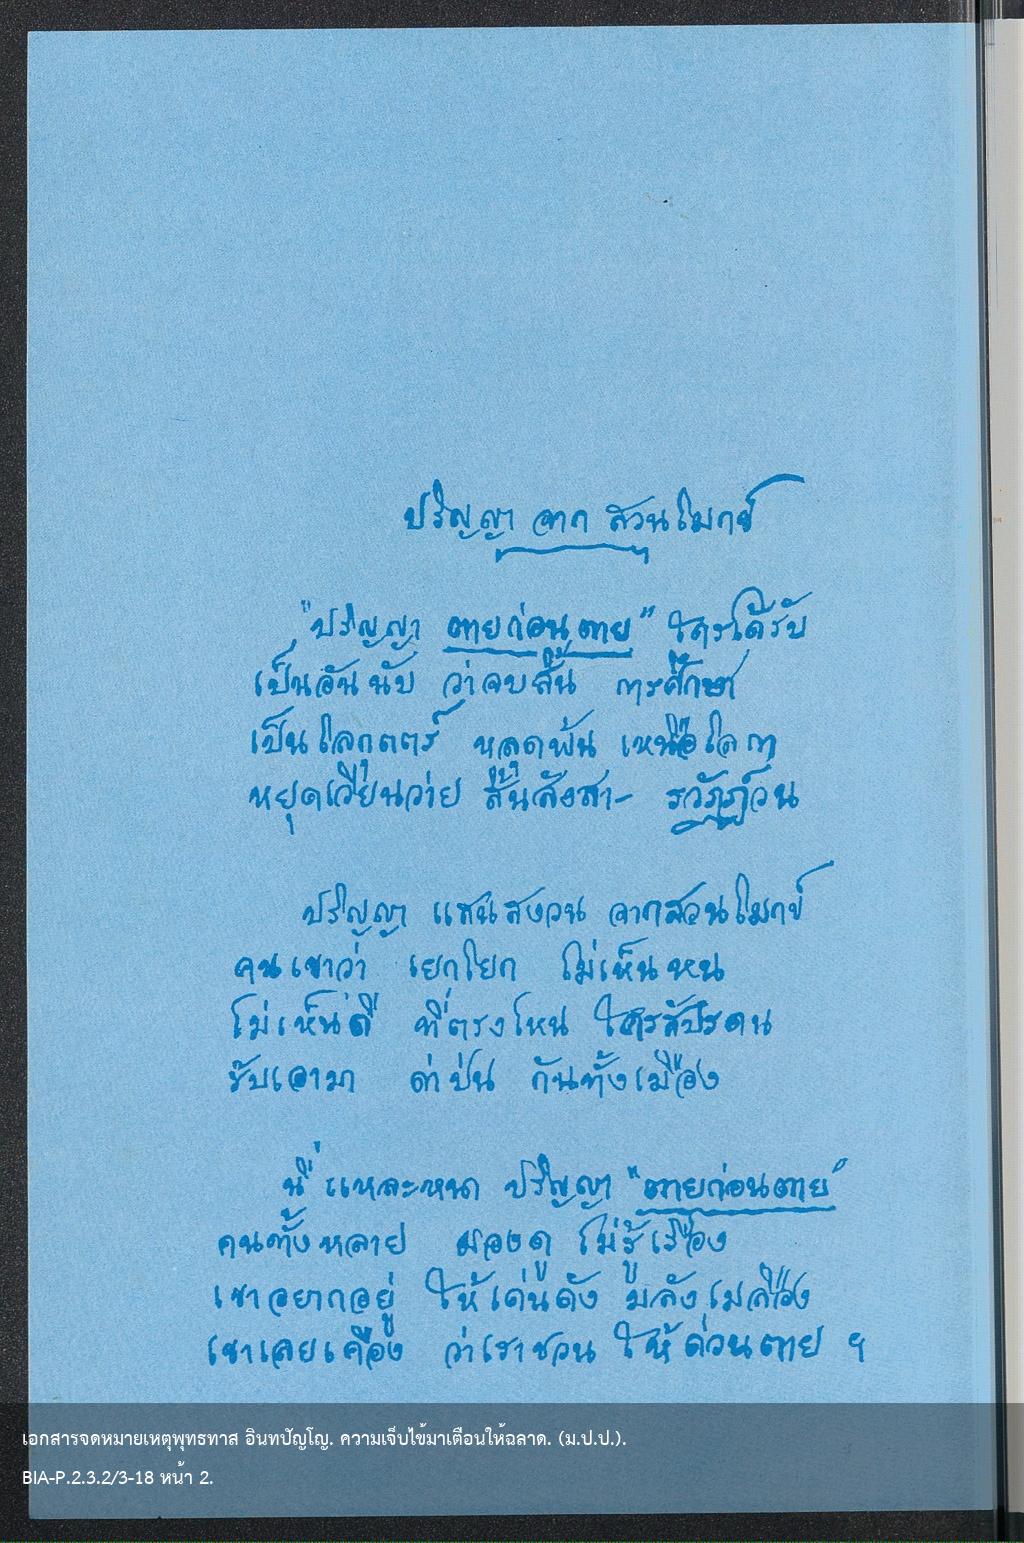 ปริญญา จาก สวนโมกข์
"ปริญญา ตายก่อนตาย" ใครได้รับ
เป็นอันนับ ว่าจบสิ้น การศึกษา
เป็นโลกุตตร์ หลุดพ้น เหนือโลกา
หยุดเวียนว่าย สิ้นสังสา- รวัฏฏ์วน
ปริญญา แสนสงวน จากสวนโมกข์
คนเขาว่า เยกโยก ไม่เห็นหน
ไม่เห็นดี ที่ตรงไหน ใครสัปรดน
รับเอามา ด่าป่น กันทั้งเมือง
นี่ แหละหนา ปริญญา "ตายก่อนตาย"
คนทั้งหลาย มองดู ไม่รู้เรื่อง
เขาอยากอยู่ ให้เด่นดัง มลังเมลือง
เขาเลยเคือง ว่าเราชวน ให้ด่วนตาย ฯ
เอกสารจดหมายเหตุพุทธทาส อินทปัญโญ. ความเจ็บไข้มาเตือนให้ฉลาด. (ม.ป.ป.).
BIA-P.2.3.2/3-18 หน้า 2.